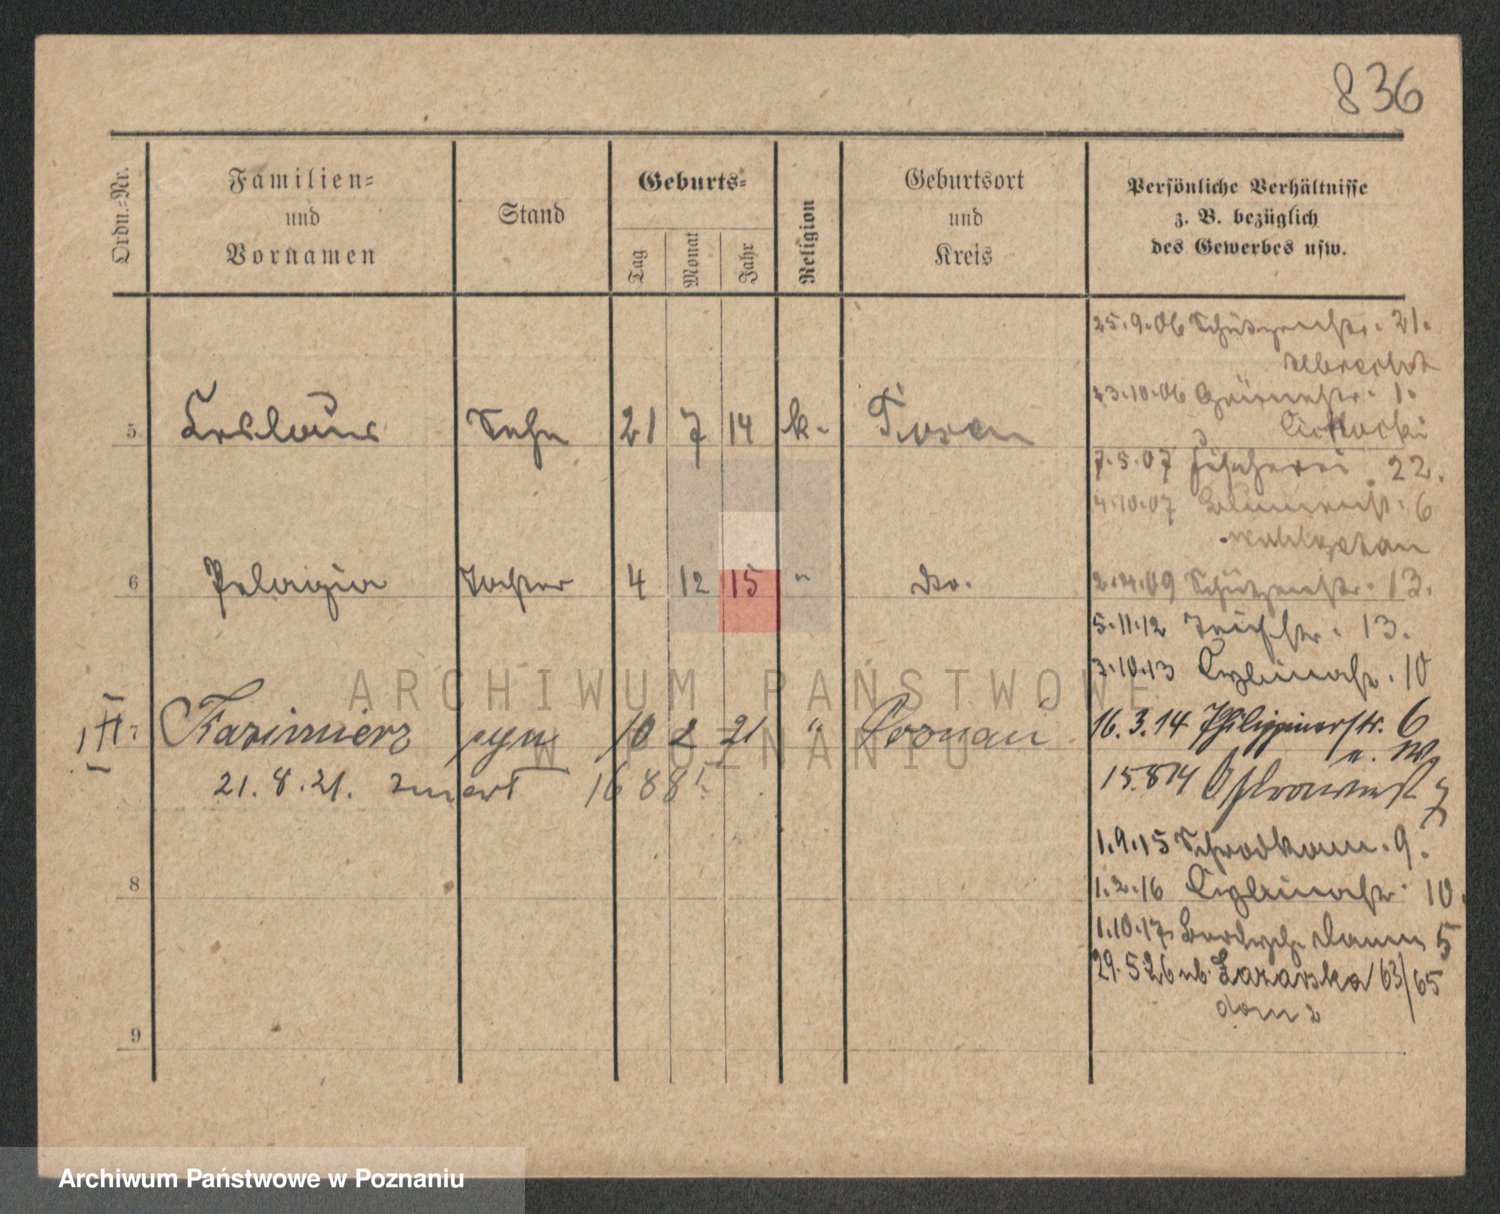 836
Ordn.-Nr.
Familien-
und
Vornamen
Stand
Geburts-
Tag
Monat
Jahr
Religion
Geburtsort
und
Kreis
Persönliche Verhältnisse
z. B. bezüglich
des Gewerbes usw.
5 Sohn 21 7 14 k. Posen
6 Pelagia Tochter 4 12 15 " do.
Kazimierz syn 10 2 21 " Poznań
21. 8. 21. zmarł 1688
8
9
25.9.06 Schützenstr. 21.
Albrecht
23.10.06 1.
7.5.07 Fischerei 22.
4.10.07 Blumenstr. 6
2.4.09 Schützenstr. 13.
5.11.12 Teichstr. 13.
3.10.13 Cybinastr. 10
16.3.14 Philippinerstr. 6
15.8.14 7
1.9.15 Schrodkamm. 9.
1.2.16 Cybinastr. 10.
1.10.17. Damm 5
29.5.26 ul. Łazarska 63/65
dom 2
ARCHIWUM PAŃSTWOWE
W POZNANIU
Archiwum Państwowe w Poznaniu